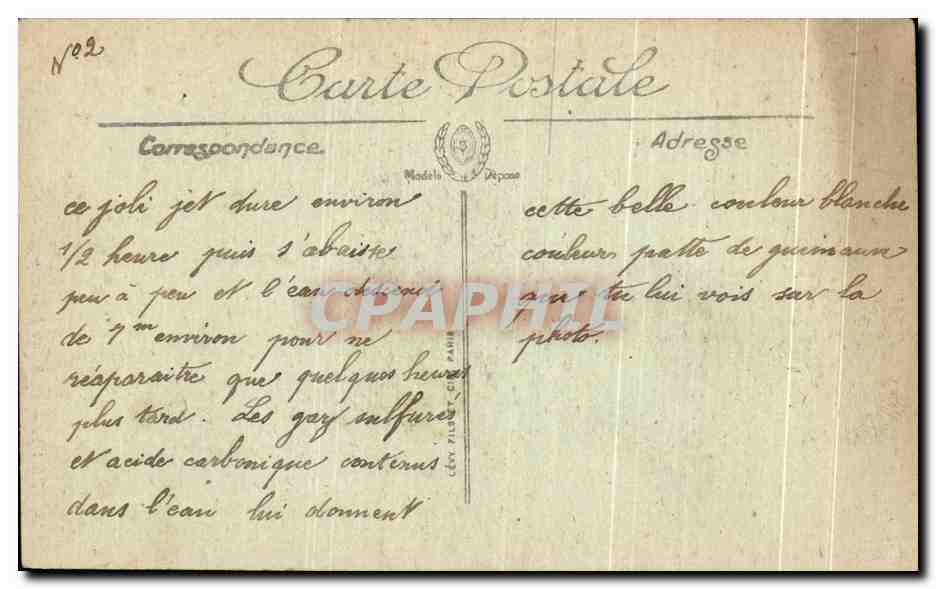 N°2
Carte Postale
Correspondance
Adresse
Modèle Déposé
ce joli jet dure environ
1/2 heure puis s'abaisse
peu à peu et l'eau descend
de 7m environ pour ne
réaparaitre que quelques heures
plus tard. Les gaz sulfurés
et acide carbonique contenus
dans l'eau lui donnent
cette belle couleur blanche
couleur patte de guimauve
que tu lui vois sur la
photo.
CPAPHIL
LÉVY FILS ET CIE PARIS